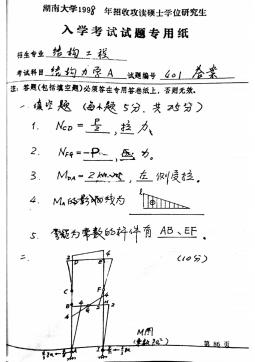 湖南大学1998 年招收攻读硕士学位研究生
入学考试试题专用纸
招生专业 结构工程
考试科目 结构力学A 试题编号 401 答案
注: 答题(包括填空题)必须答在专用答卷纸上, 否则无效。
一. 填空题 (每小题 5分, 共25分)
1. NCD = P/2 , 拉力.
2. NFA = -P , 压力.
3. MDA = 左侧受拉.
4. 影响线为
5. 零的杆件有 AB、EF .
二. (10分)
M图
第 86 页